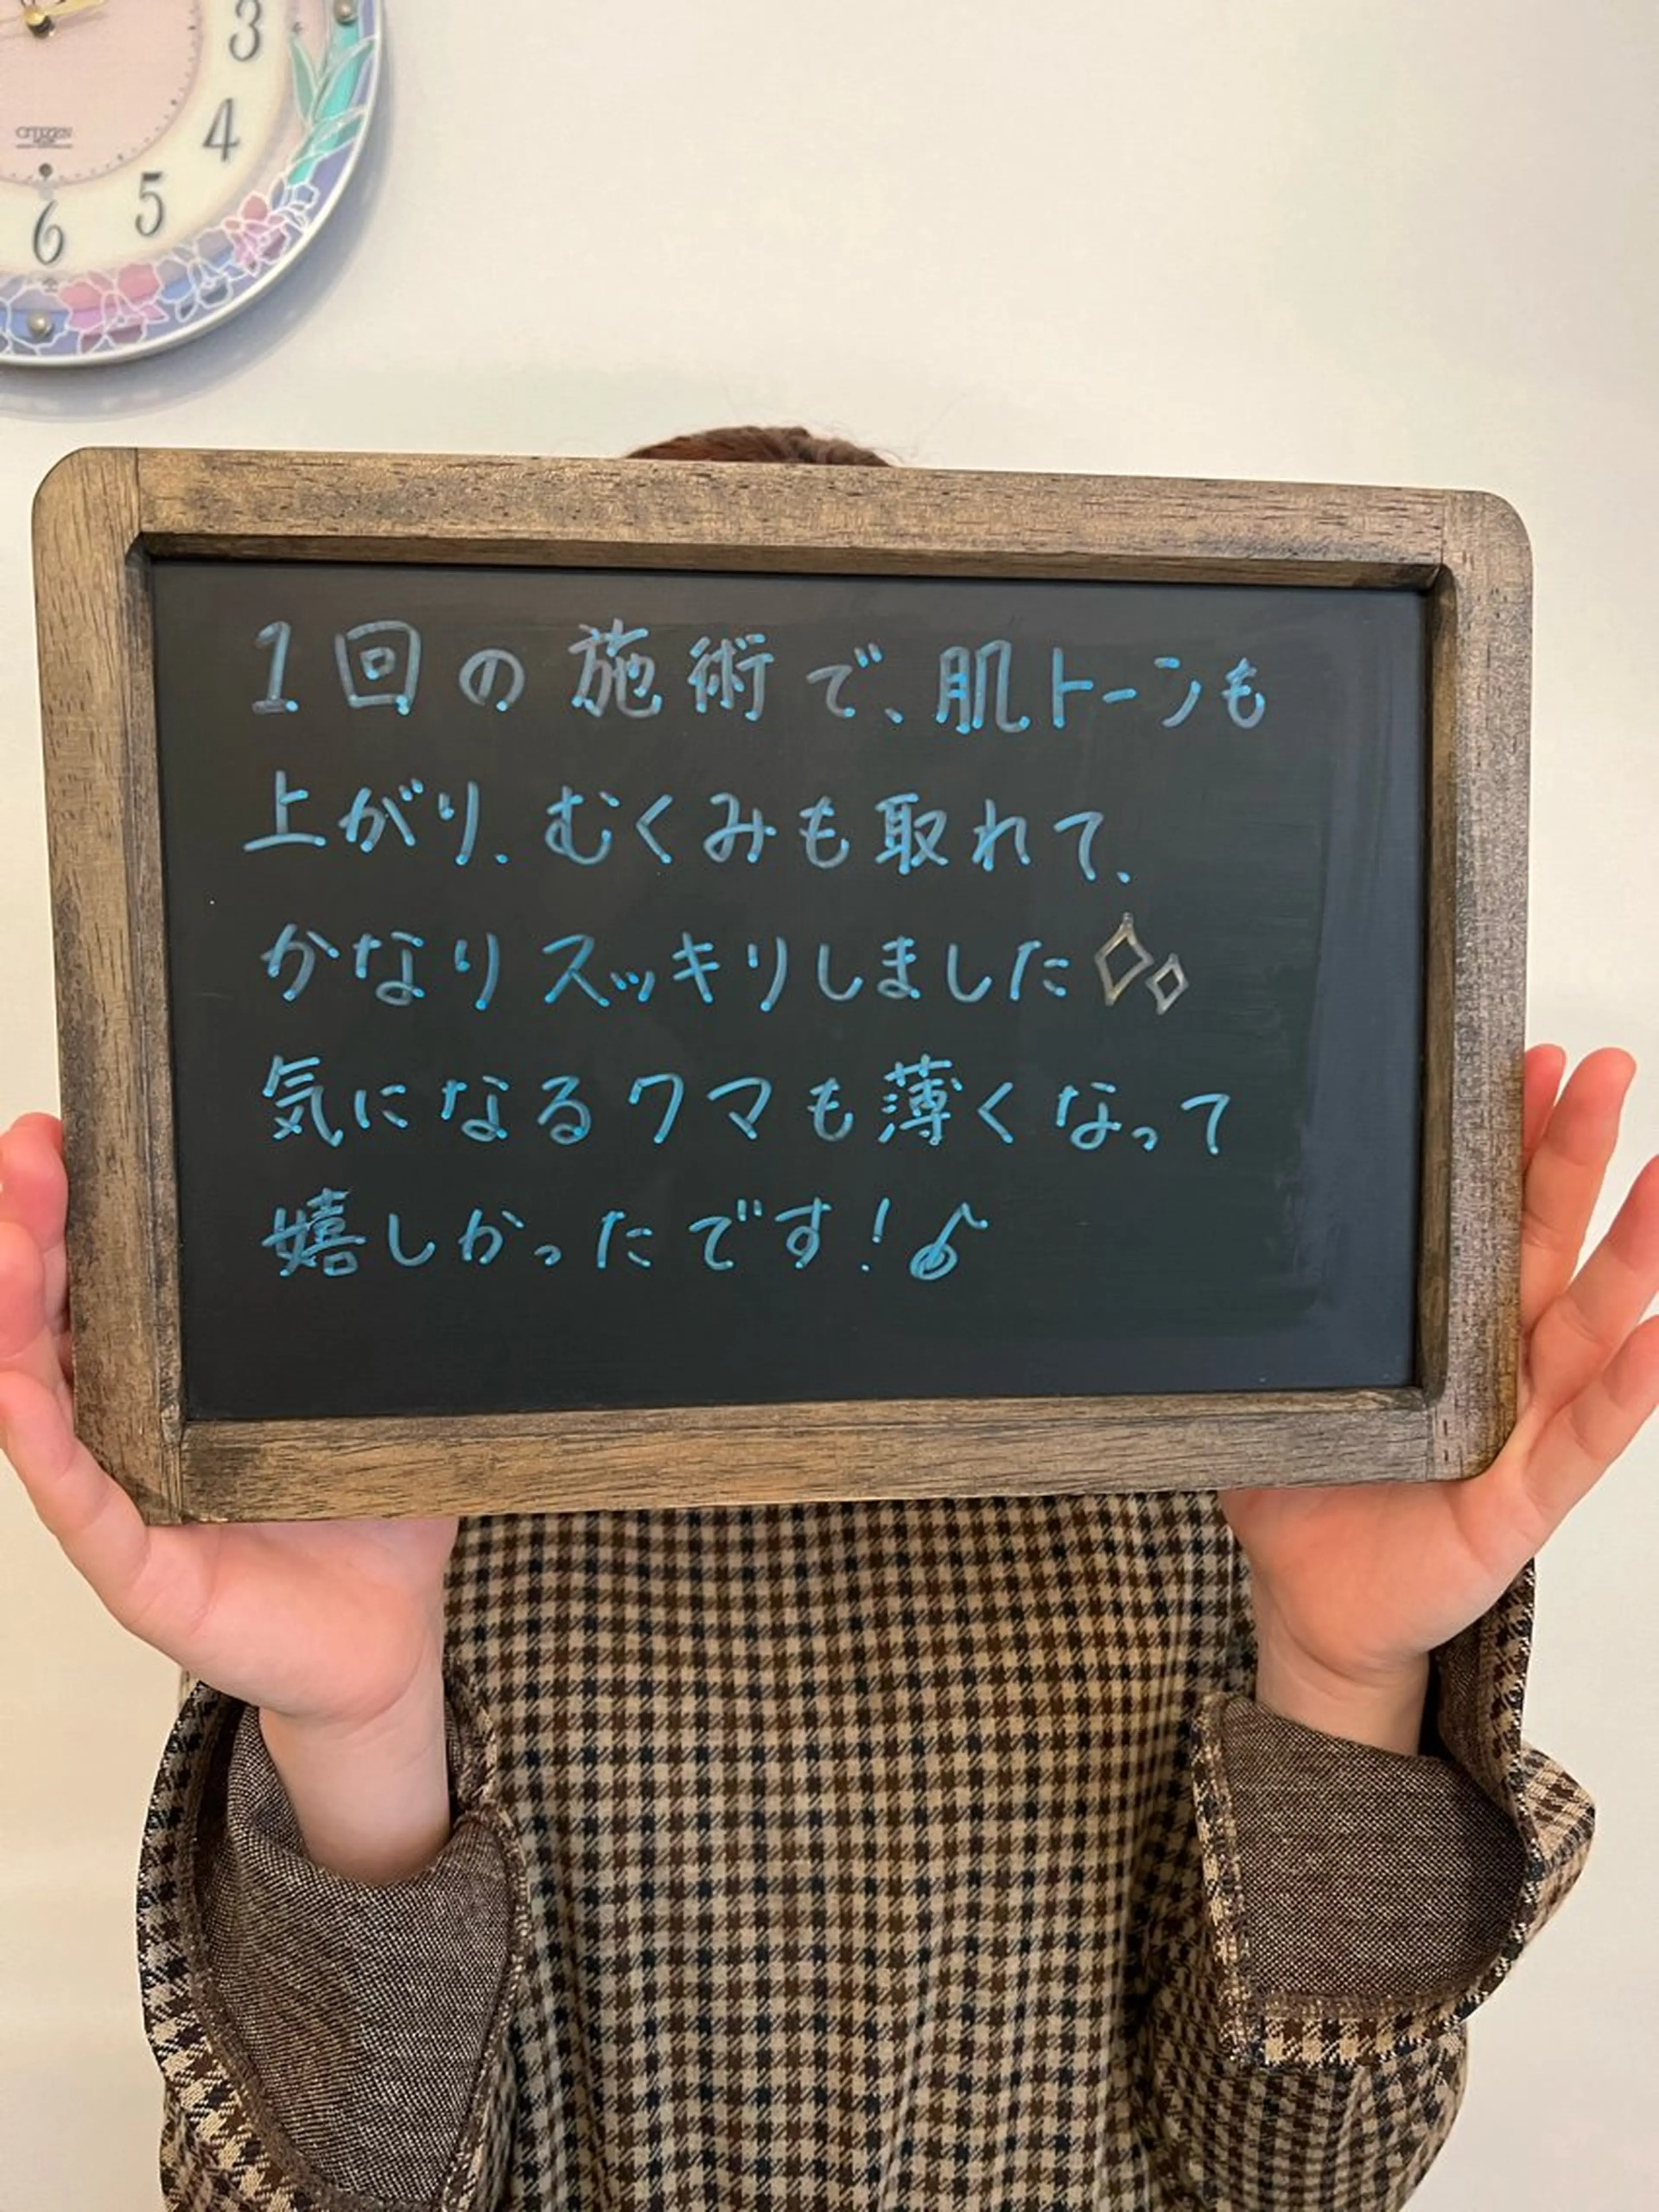 3
4
CITIZEN
5
6
1回の施術で、肌トーンも
上がり、むくみも取れて、
かなりスッキリしました
気になるクマも薄くなって
嬉しかったです!♪